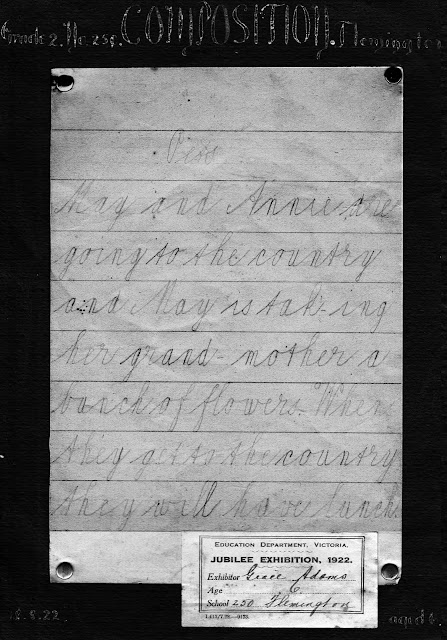 Grade 2. No. 250. COMPOSITION. Flemington
May and Annie are
going to the country
and May is tak-ing
her grand-mother a
bunch of flowers. When
they get to the country
they will have lunch
EDUCATION DEPARTMENT, VICTORIA.
JUBILEE EXHIBITION, 1922.
Exhibitor Grace Adams
Age 6
School 250 Flemington
5.22
aged 6.